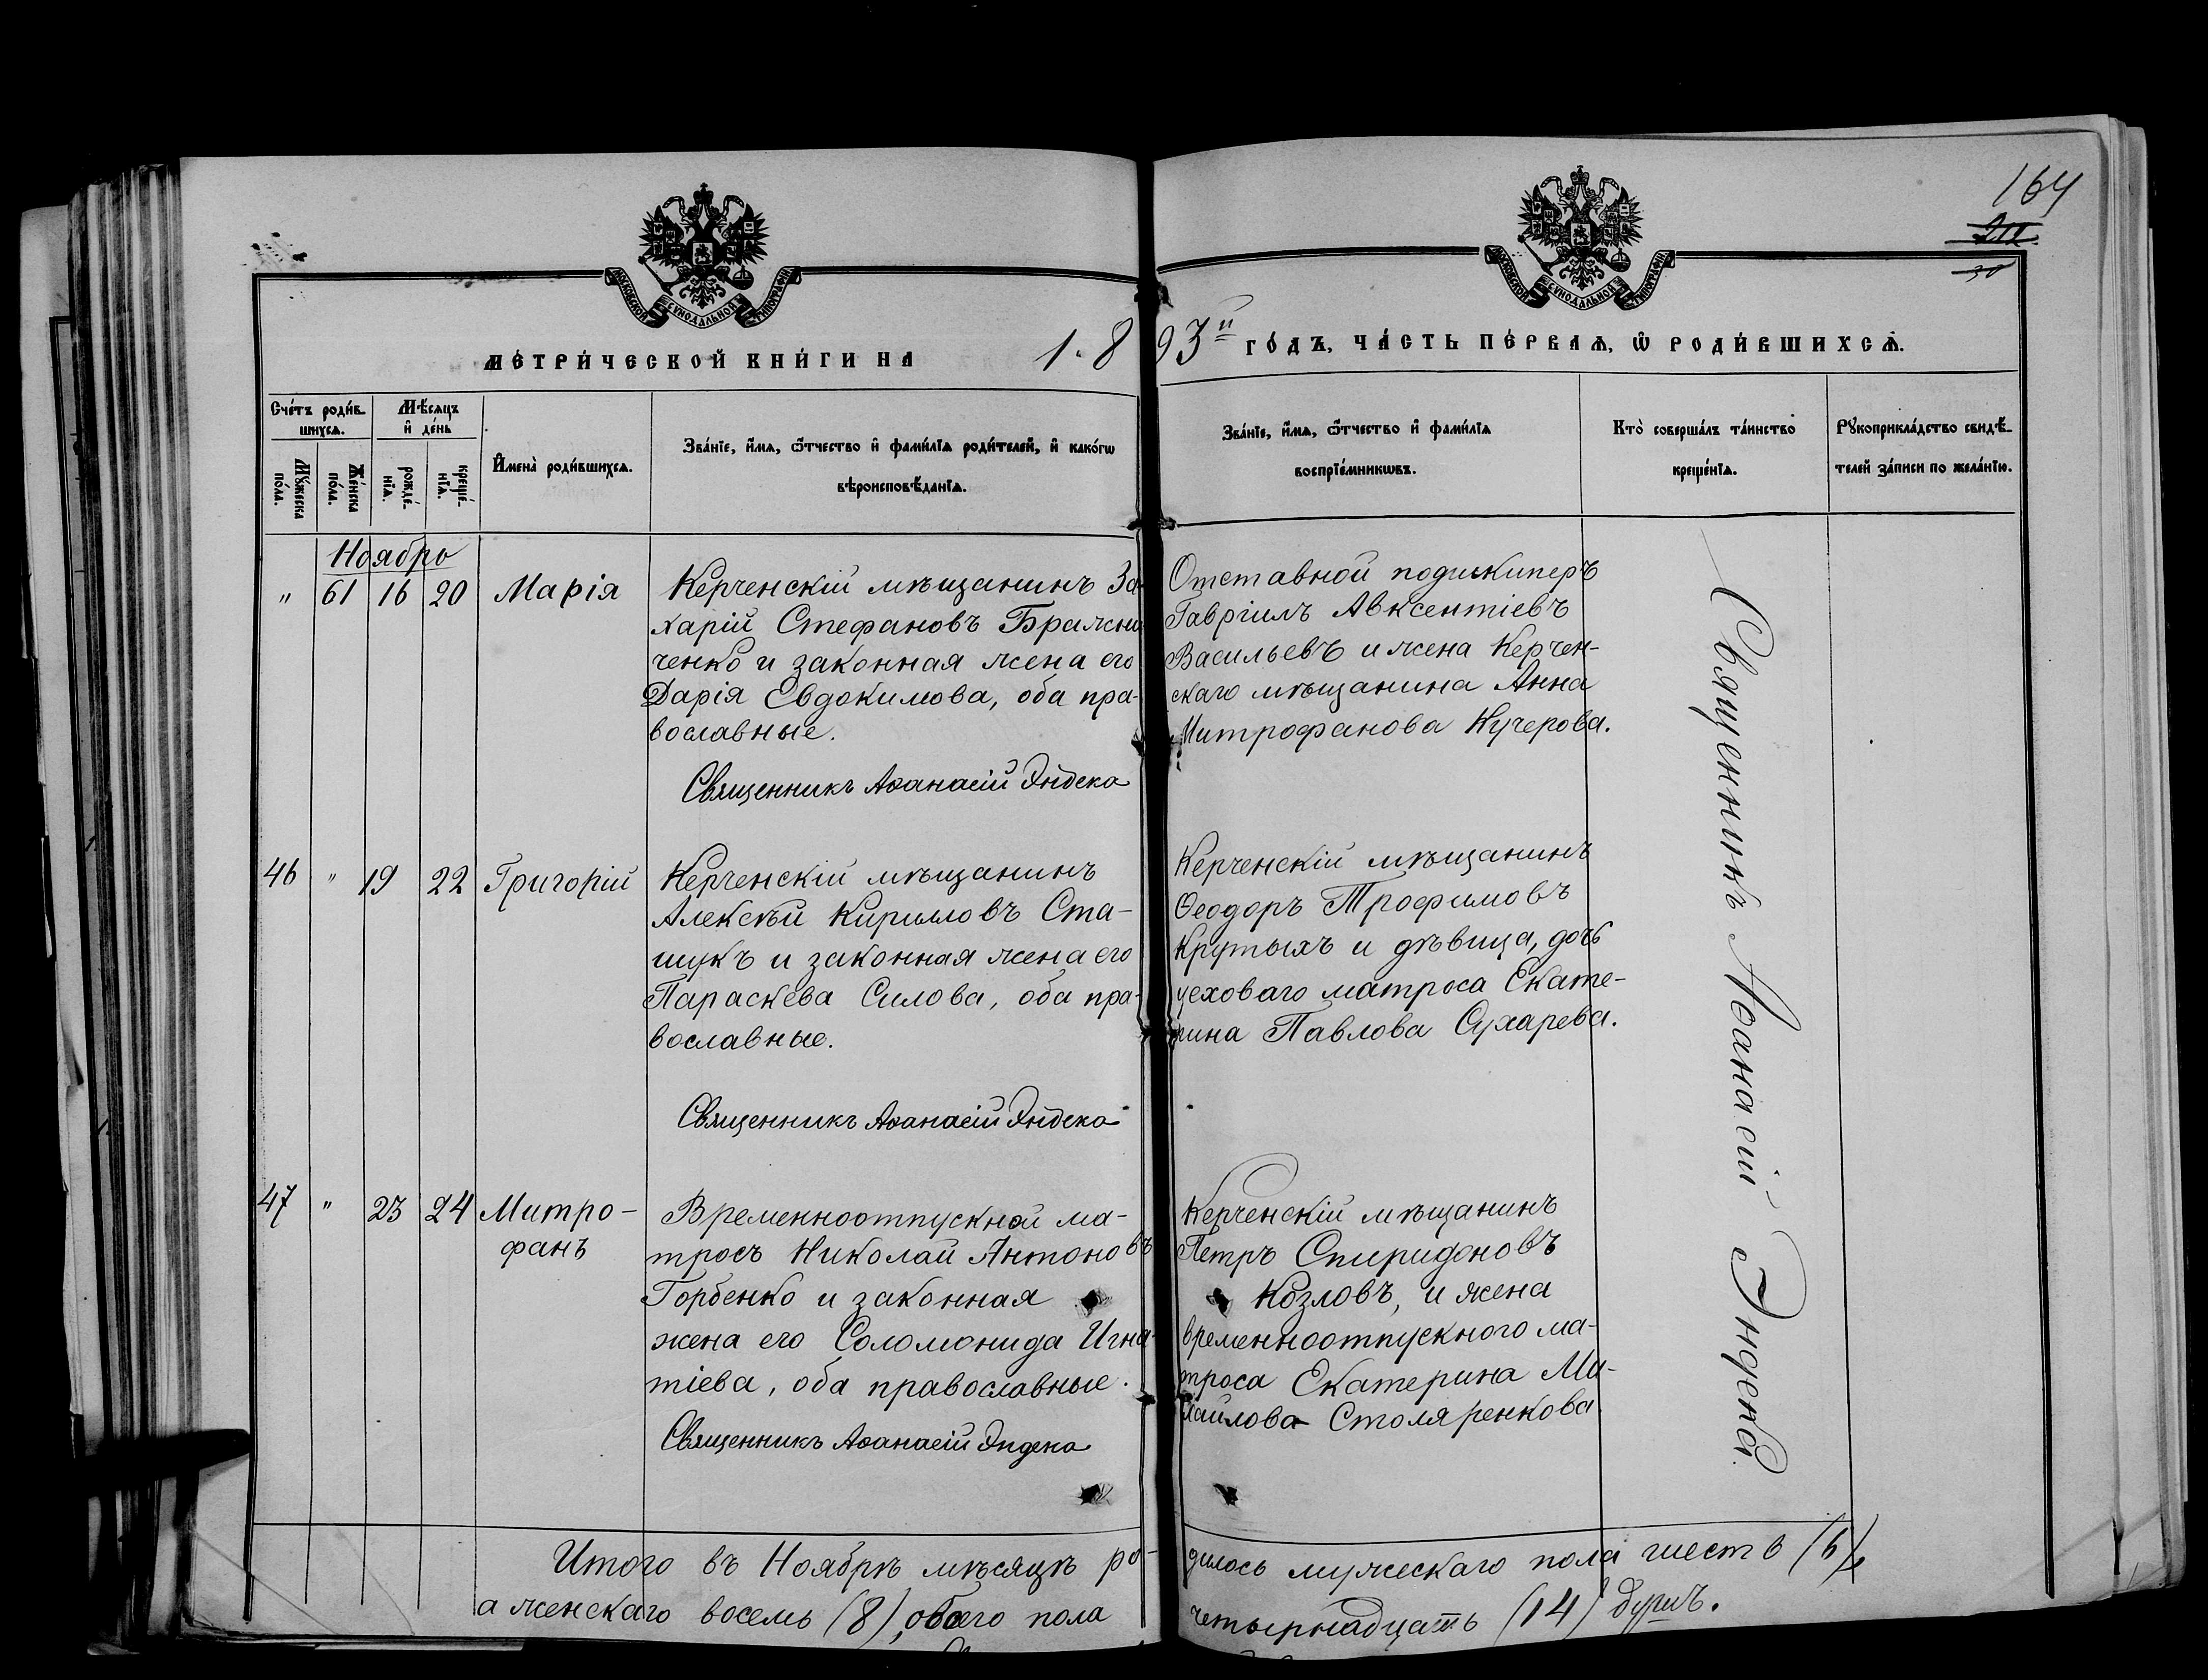 164
211
30
МОСКОВСКОЙ СѴНОДАЛЬНОЙ ТИПОГРАФІИ
МОСКОВСКОЙ СѴНОДАЛЬНОЙ ТИПОГРАФІИ
МЕ́ТРИ́ЧЕСКОЙ КНИ́ГИ НА 1893й ГО́ДЪ, ЧА́СТЬ ПЕ́РВАѦ, Ѽ РОДИ́ВШИХСѦ.
Сче́тъ роди́в-
шихсѧ.
Мѣ́сѧцъ
и҆ де́нь
Мꙋ́жеска по́ла.
Же́нска по́ла.
рожде́-
нїѧ.
креще́-
нїѧ.
И҆мена̀ роди́вшихсѧ.
Зва́нїе, и҆́мѧ, ѻ҆́тчество и҆ фами́лїѧ роди́телей, и҆ како́гѡ
вѣроисповѣ́данїѧ.
Зва́нїе, и҆́мѧ, ѻ҆́тчество и҆ фами́лїѧ
воспрїе́мникѡвъ.
Кто̀ соверша́лъ та́инство
креще́нїѧ.
Рꙋкоприкла́дство свидѣ́-
телей за́писи по жела́нїю.
Ноябрь
" 61 16 20 Марія
Керченскій мѣщанинъ За-
харій Стефановъ Бражни-
ченко и законная жена его
Дарія Евдокимова, оба пра-
вославные.
Священникъ Аѳанасій Эндека
Отставной подшкиперъ
Гавріилъ Авксентіевъ
Васильевъ и жена Керчен-
скаго мѣщанина Анна
Митрофанова Кучерова.
46 " 19 22 Григорій
Керченскій мѣщанинъ
Алексѣй Кирилловъ Ста-
шукъ и законная жена его
Параскева Силова, оба пра-
вославные.
Священникъ Аѳанасій Эндека
Керченскій мѣщанинъ
Ѳеодоръ Трофимовъ
Крутыхъ и дѣвица, дочь
цеховаго матроса Екате-
рина Павлова Сухарева.
47 " 23 24 Митро-
фанъ
Временноотпускной ма-
тросъ Николай Антоновъ
Горбенко и законная
жена его Соломонида Игна-
тіева, оба православные.
Священникъ Аѳанасій Эндека
Керченскій мѣщанинъ
Петръ Спиридоновъ
Козловъ, и жена
временноотпускного ма-
троса Екатерина Ми-
хайлова Столяренкова
Священникъ Аѳанасій Эндека
Итого въ Ноябрѣ мѣсяцѣ ро-дилось мужескаго пола шесть (6),
а женскаго восемь (8), обоего пола четырнадцать (14) душъ.